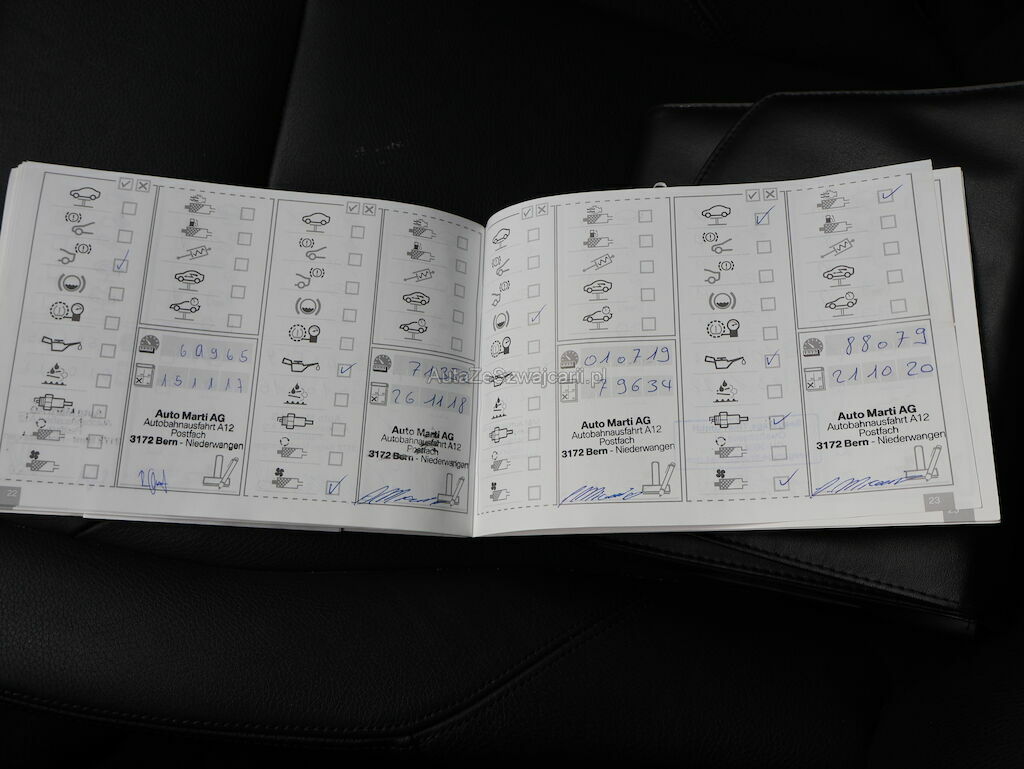 60965
151117
Auto Marti AG
Autobahnausfahrt A12
Postfach
3172 Bern - Niederwangen
22
26 11 18
Auto Marti AG
Autobahnausfahrt A12
Postfach
3172 Bern - Niederwangen
AutaZeSzwajcarii.pl
010719
79634
Auto Marti AG
Autobahnausfahrt A12
Postfach
3172 Bern - Niederwangen
88079
21 10 20
Auto Marti AG
Autobahnausfahrt A12
Postfach
3172 Bern - Niederwangen
23